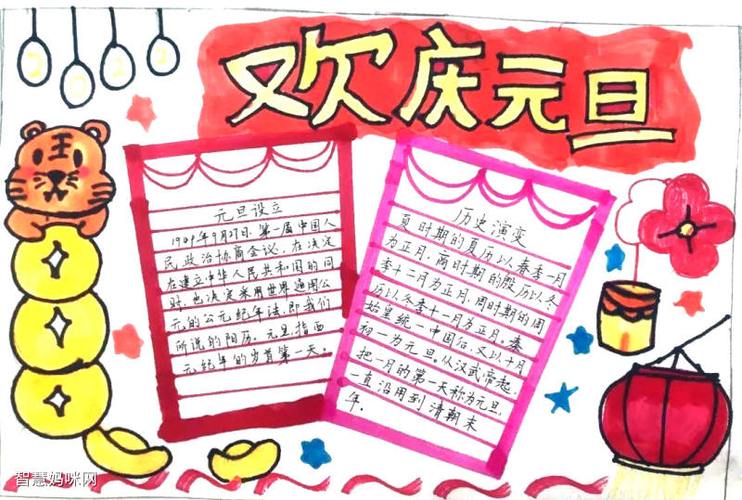 2022
欢庆元旦
元旦设立
1949年9月27日，第一届中国人
民政治协商会议，在决定
在建立中华人民共和国的同
时，也决定采用世界通用公
元的公元纪年法，即我们
所说的阳历，元旦指西
元纪年的岁首第一天。
历史演变
夏时期的夏历以春季一月
为正月，商时期的殷历以冬
季十二月为正月，周时期的周
历以冬季十一月为正月。秦
始皇统一中国后，又以十月
初一为元旦。从汉武帝起，
把一月的第一天称为元旦，
一直沿用到清朝末
年．
王
智慧妈咪网